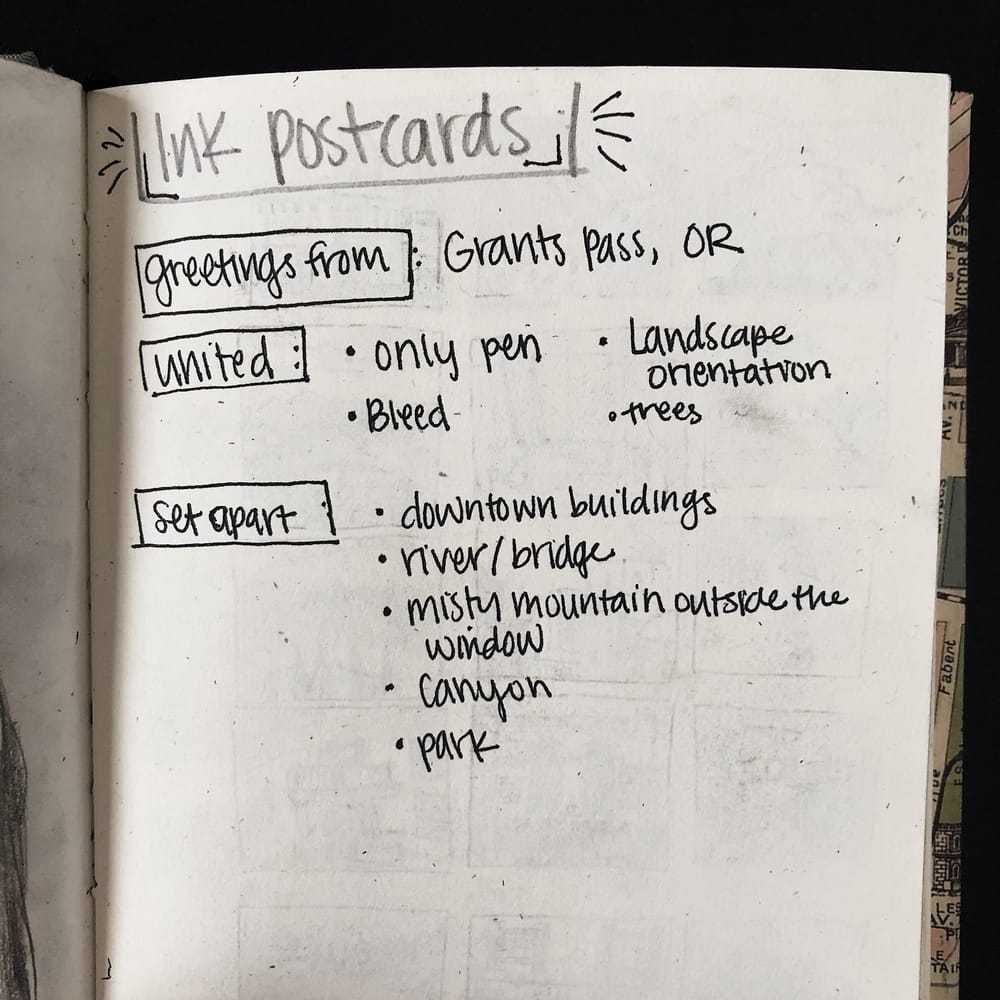 Ink postcards
greetings from : Grants Pass, OR
united : • only pen • Landscape
orientation
• Bleed • trees
Set apart : • downtown buildings
• river/bridge
• misty mountain outside the
window
• Canyon
• park
VICTOR
AV.
Fabert
AV.